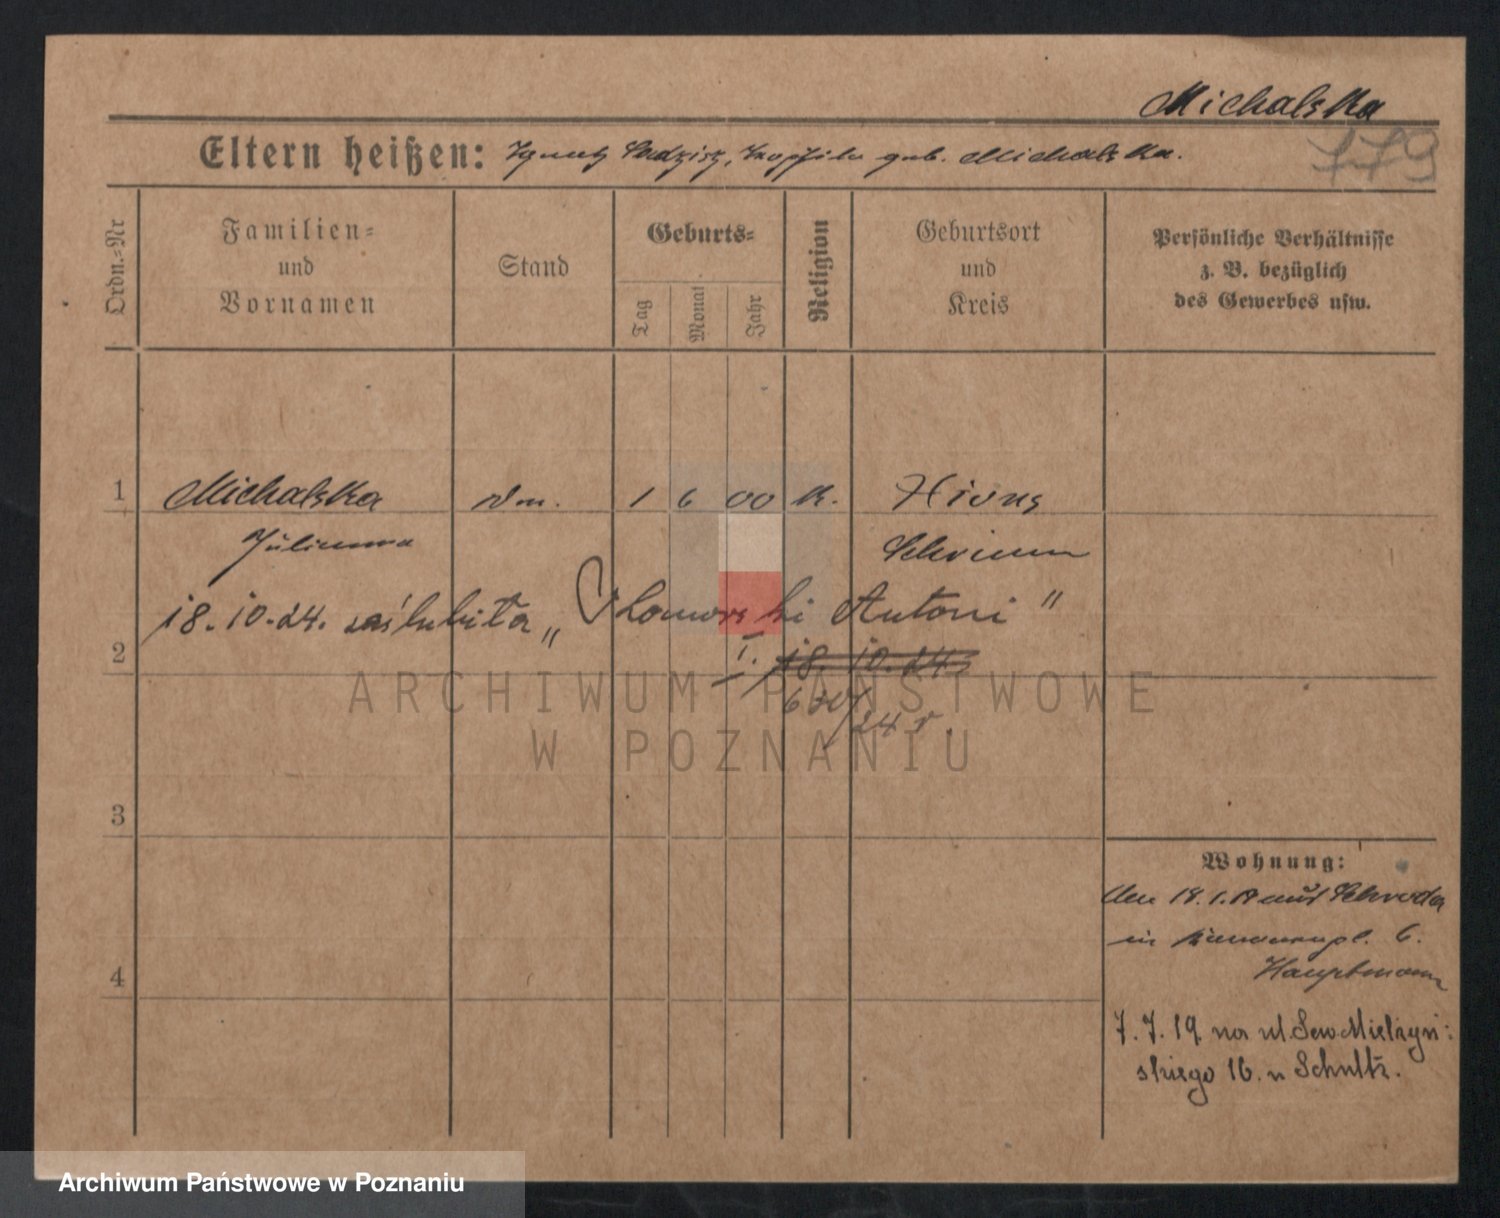 Michalska
779
Eltern heißen: geb. Michalska.
Ordn.-Nr
Familien-
und
Vornamen
Stand
Geburts-
Tag
Monat
Jahr
Religion
Geburtsort
und
Kreis
Persönliche Verhältnisse
z. B. bezüglich
des Gewerbes usw.
1 Michalska 1 6 00 K.
Julianna Schrimm
18.10.24. zaślubiła „ Antoni "
2 I. 18.10.24
24 r.
3
4
Wohnung:
Den 18.1.19 aus Schroda
in 6.
Hauptmann
7.7.19 na ul. Sew. Mielżyń:
skiego 16. u Schultz.
ARCHIWUM PAŃSTWOWE
W POZNANIU
Archiwum Państwowe w Poznaniu